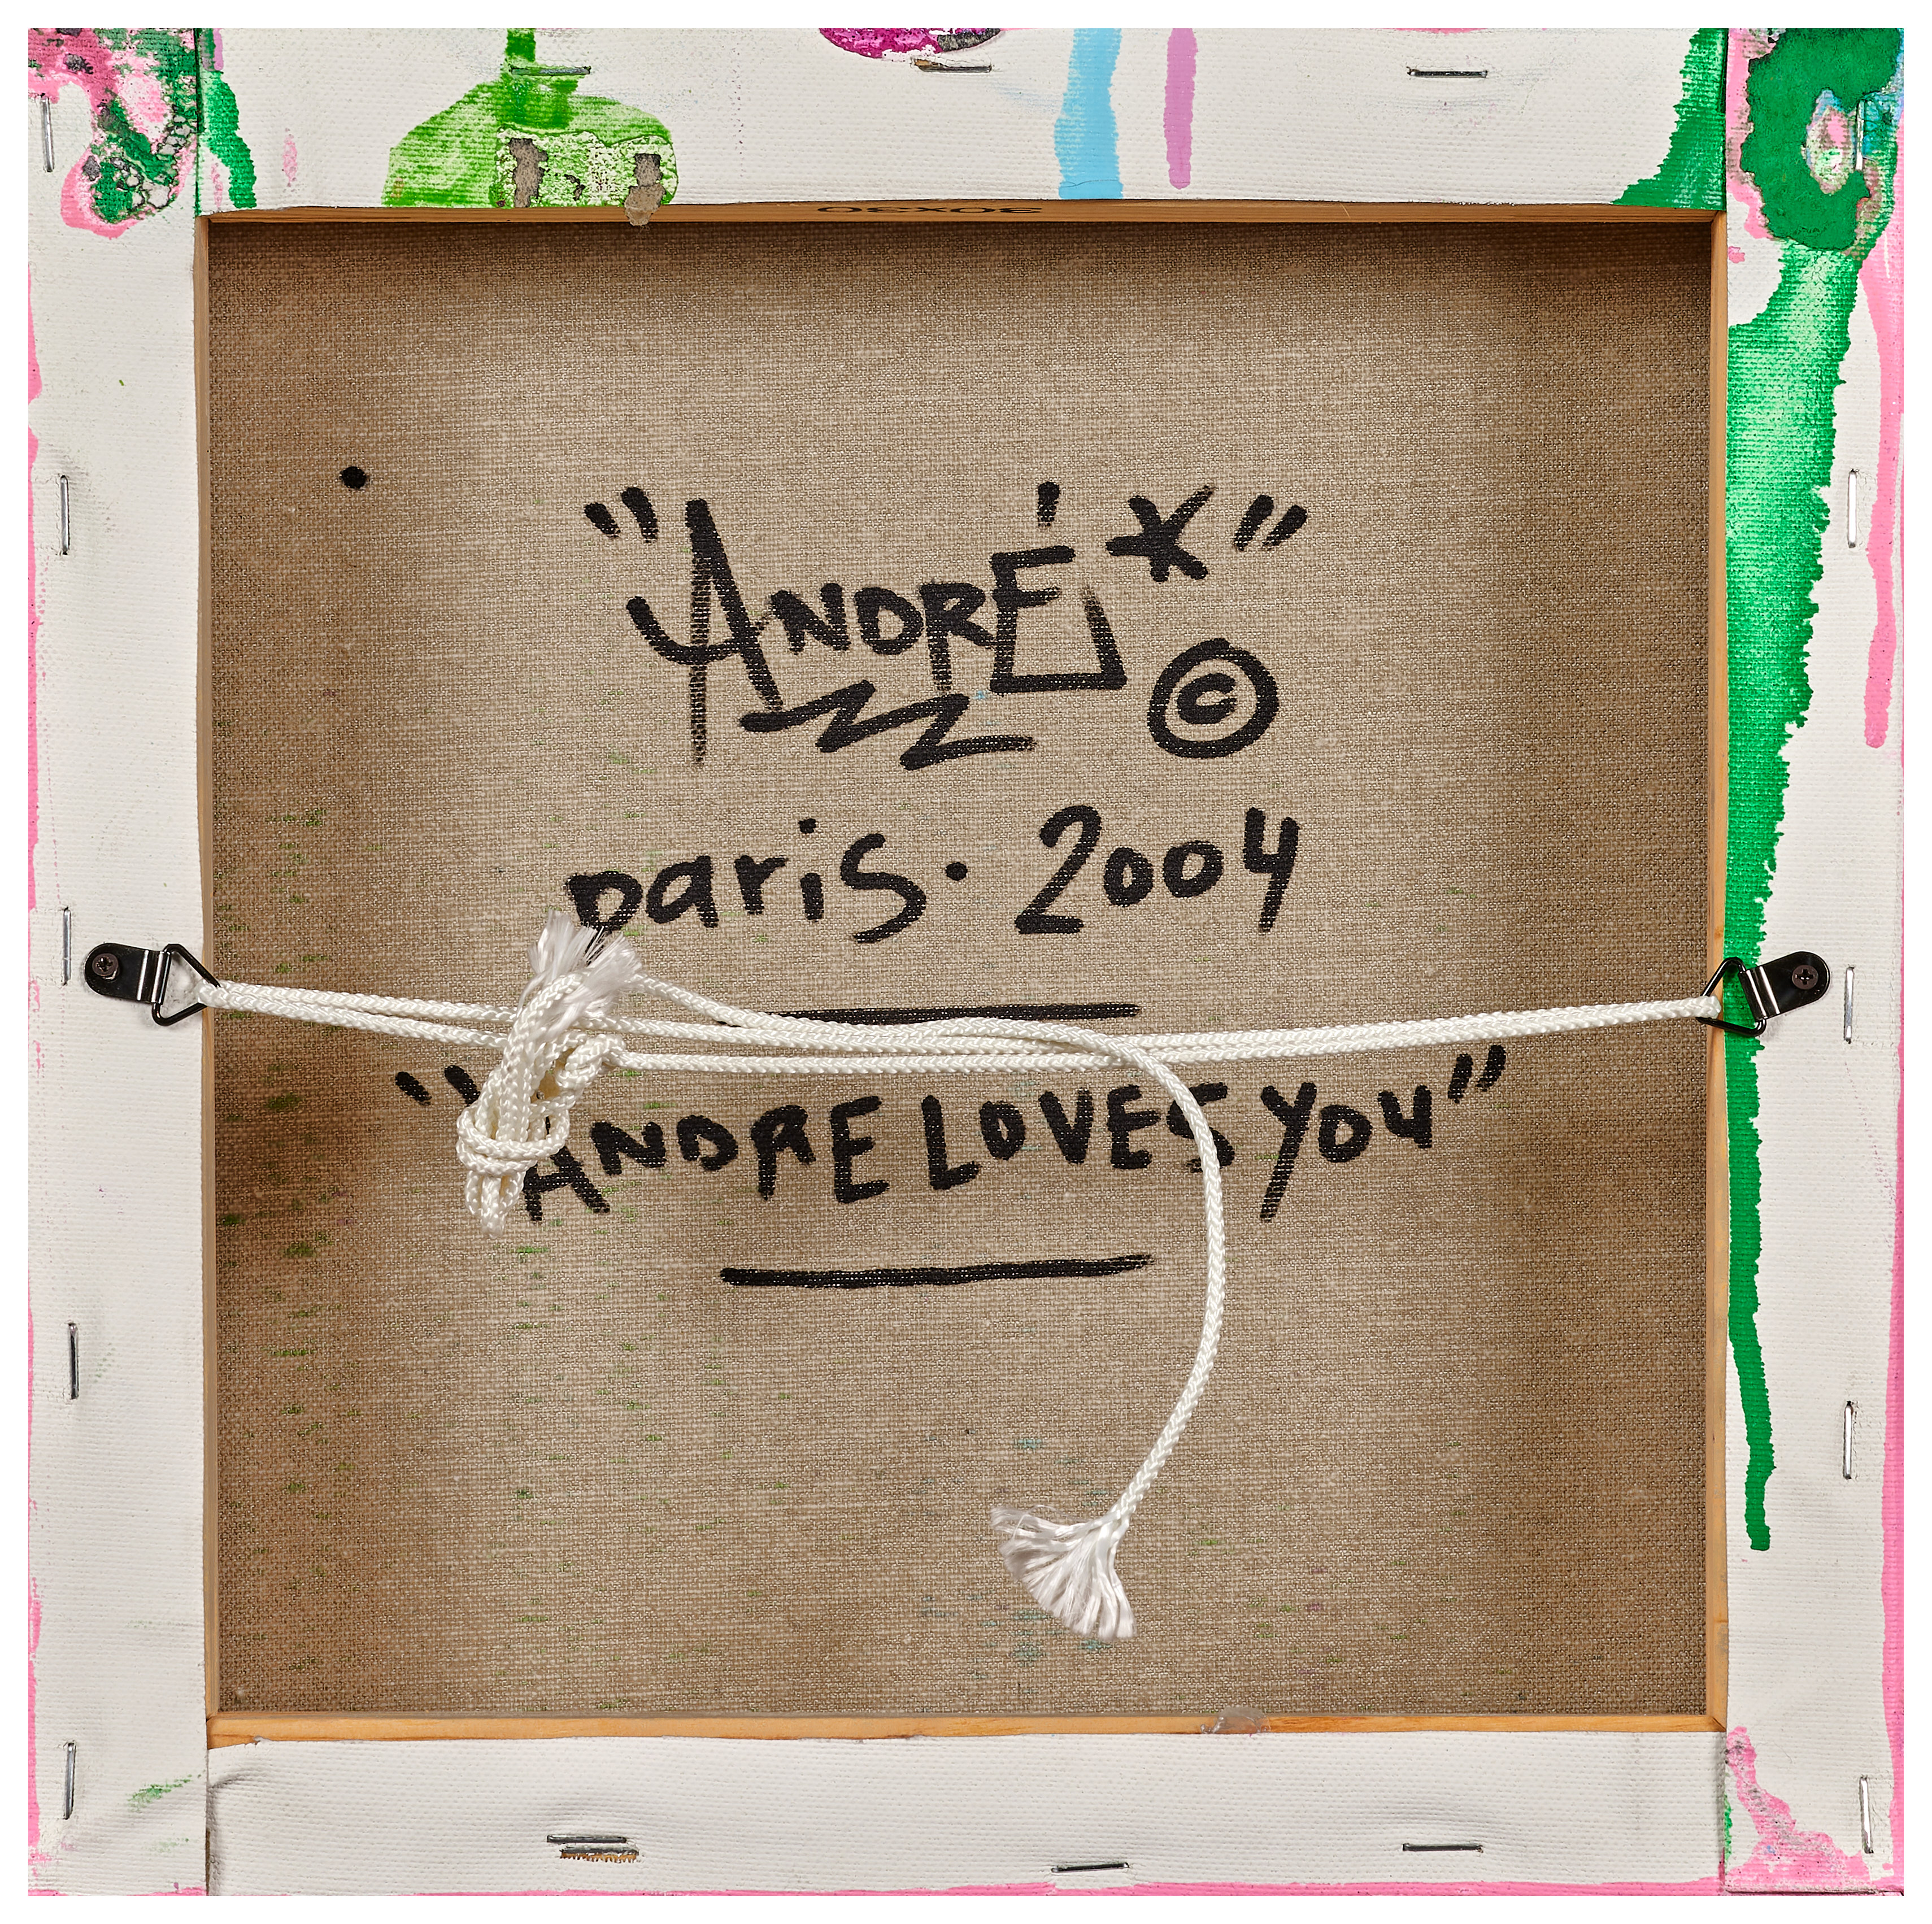 30x30
"ANDRÉ*"
©
paris. 2004
"ANDRE LOVES YOU"